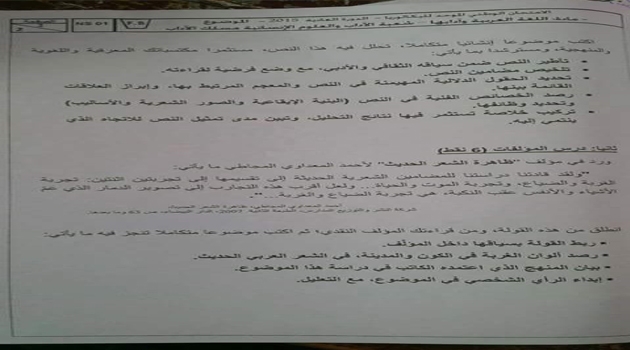 الامتحان الوطني الموحد للبكالوريا - الدورة العادية 2015 - الموضوع
- مادة: اللغة العربية وآدابها - شعبة الآداب والعلوم الإنسانية مسلك الآداب
NS 01
2
اكتب موضوعا إنشائيا متكاملا، تحلل فيه هذا النص، مستثمرا مكتسباتك المعرفية واللغوية
والمنهجية، ومسترشدا بما يأتي:
• تأطير النص ضمن سياقه الثقافي والأدبي، مع وضع فرضية لقراءته.
• تلخيص مضامين النص.
• تحديد الحقول الدلالية المهيمنة في النص والمعجم المرتبط بها، وإبراز العلاقات
القائمة بينها.
• رصد الخصائص الفنية في النص (البنية الإيقاعية والصور الشعرية والأساليب)
وتحديد وظائفها.
• تركيب خلاصة تستثمر فيها نتائج التحليل، وتبين مدى تمثيل النص للاتجاه الذي
ينتمي إليه.
ثانيا: درس المؤلفات (6 نقط)
ورد في مؤلف "ظاهرة الشعر الحديث" لأحمد المعداوي المجاطي ما يأتي:
"ولقد قادتنا دراستنا للمضامين الشعرية الحديثة إلى تقسيمها إلى تجربتين اثنتين: تجربة
الغربة والضياع، وتجربة الموت والحياة... ولعل أقرب هذه التجارب إلى تصوير الدمار الذي عم
الأشياء والأنفس عقب النكبة، هي تجربة الضياع والغربة..."
أحمد المعداوي المجاطي، ظاهرة الشعر الحديث،
شركة النشر والتوزيع المدارس، الطبعة الثانية 2007، الدار البيضاء، ص وما بعدها
انطلق من هذه القولة، ومن قراءتك المؤلف النقدي؛ ثم اكتب موضوعا متكاملا تنجز فيه ما يأتي:
• ربط القولة بسياقها داخل المؤلف.
• رصد ألوان الغربة في الكون والمدينة، في الشعر العربي الحديث.
• بيان المنهج الذي اعتمده الكاتب في دراسة هذا الموضوع.
• إبداء الرأي الشخصي في الموضوع، مع التعليل.